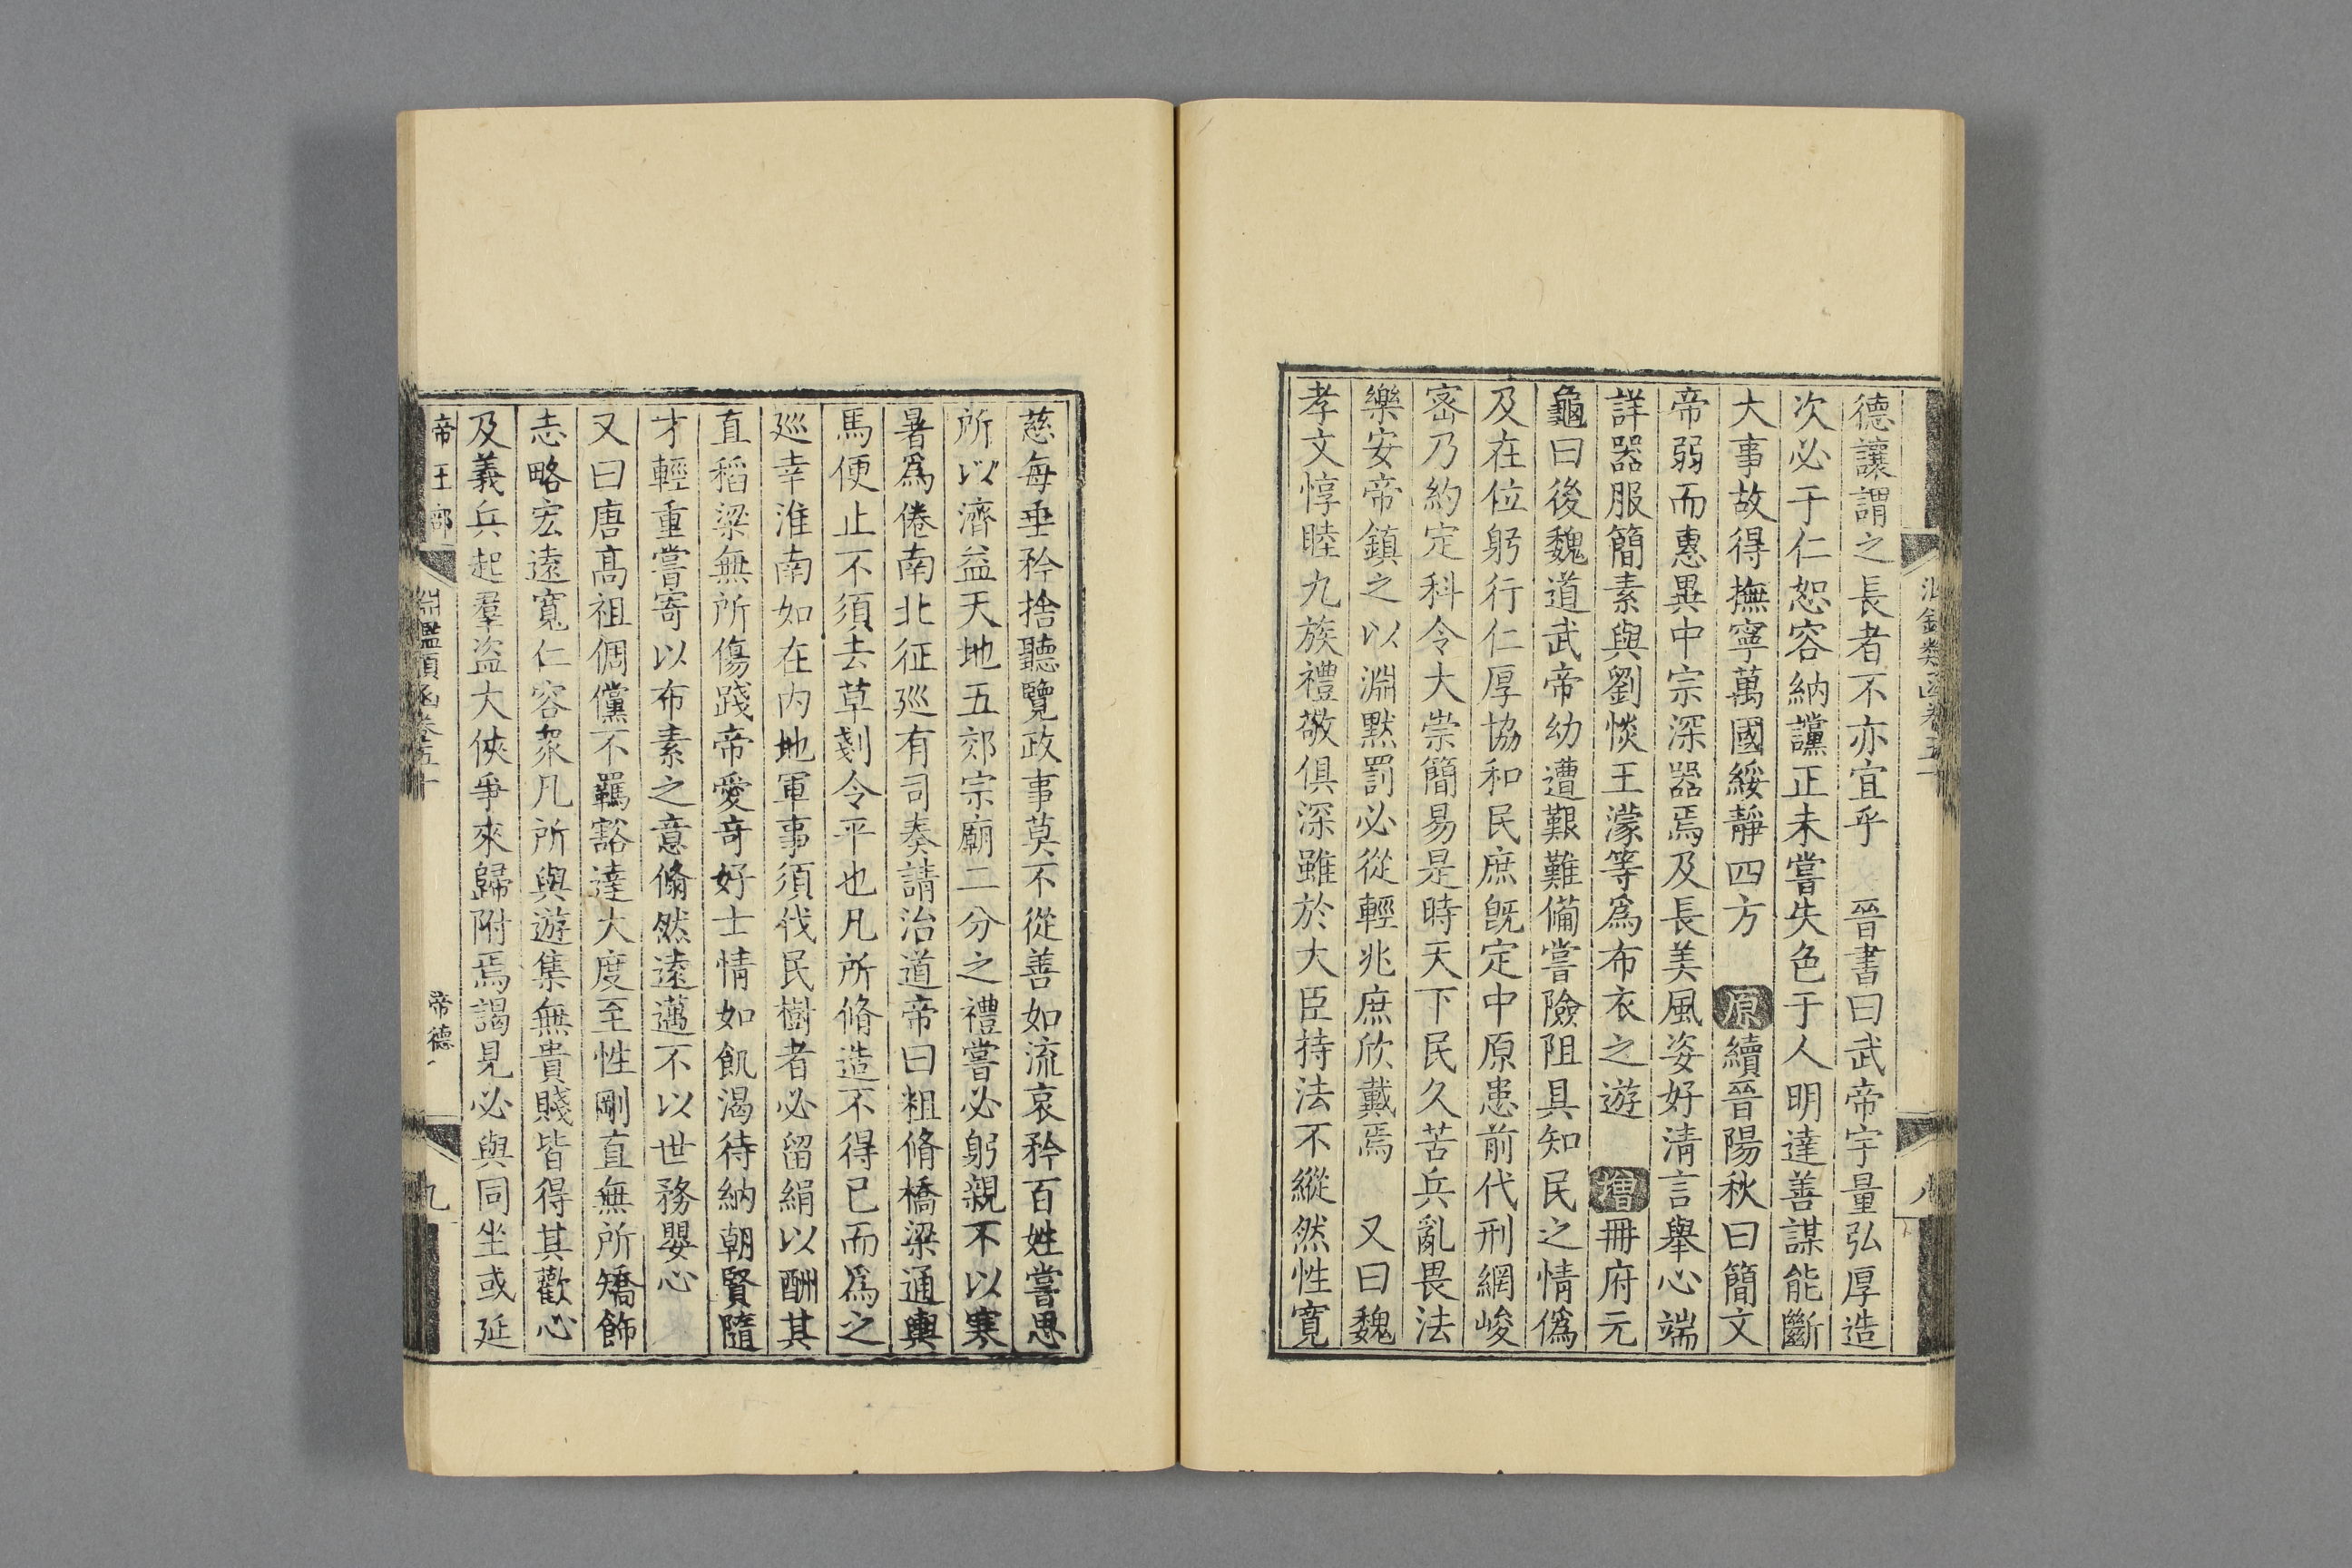 德讓謂之長者不亦宜乎　晉書曰武帝宇量弘厚造
次必于仁恕容納讜正未嘗失色于人明達善謀能斷
大事故得撫寧萬國綏靜四方　原續晉陽秋曰簡文
帝弱而惠異中宗深器焉及長美風姿好清言舉心端
詳器服簡素與劉惔王濛等爲布衣之遊　增冊府元
龜曰後魏道武帝幼遭艱難備嘗險阻具知民之情僞
及在位躬行仁厚協和民庶旣定中原患前代刑網峻
宻乃約定科令大崇簡易是時天下民久苦兵亂畏法
樂安帝鎮之以淵黙罰必從輕兆庶欣戴焉　又曰魏
孝文惇睦九族禮敬俱深雖於大臣持法不縱然性寬
類函卷五十
八
慈每垂矜捨聽覽政事莫不從善如流哀矜百姓嘗思
所以濟益天地五郊宗廟二分之禮嘗必躬親不以寒
暑爲倦南北征廵有司奏請治道帝曰粗脩橋梁通輿
馬便止不須去草剗令平也凡所脩造不得已而爲之
廵幸淮南如在内地軍事須伐民樹者必留絹以酬其
直稻梁無所傷踐帝愛竒好士情如飢渴待納朝賢隨
才輕重嘗寄以布素之意翛然遠邁不以世務嬰心
又曰唐高祖倜儻不羈豁達大度至性剛直無所矯飾
志略宏遠寬仁容衆凡所與遊集無貴賤皆得其歡心
及義兵起羣盜大俠爭來歸附焉謁見必與同坐或延
帝王部
淵鑑類函卷五十
帝德一
九